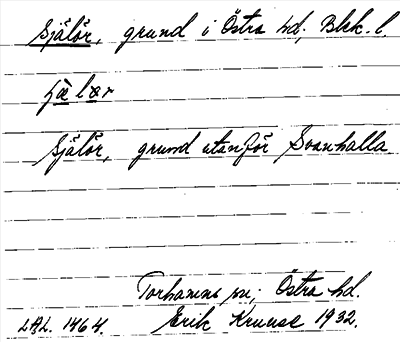 Själör, grund i Östra hd, Blek. l.
Själör, grund utanför Svanhalla
Torhamns sn; Östra hd.
LAL. 1464. Erik Kruuse 1932.